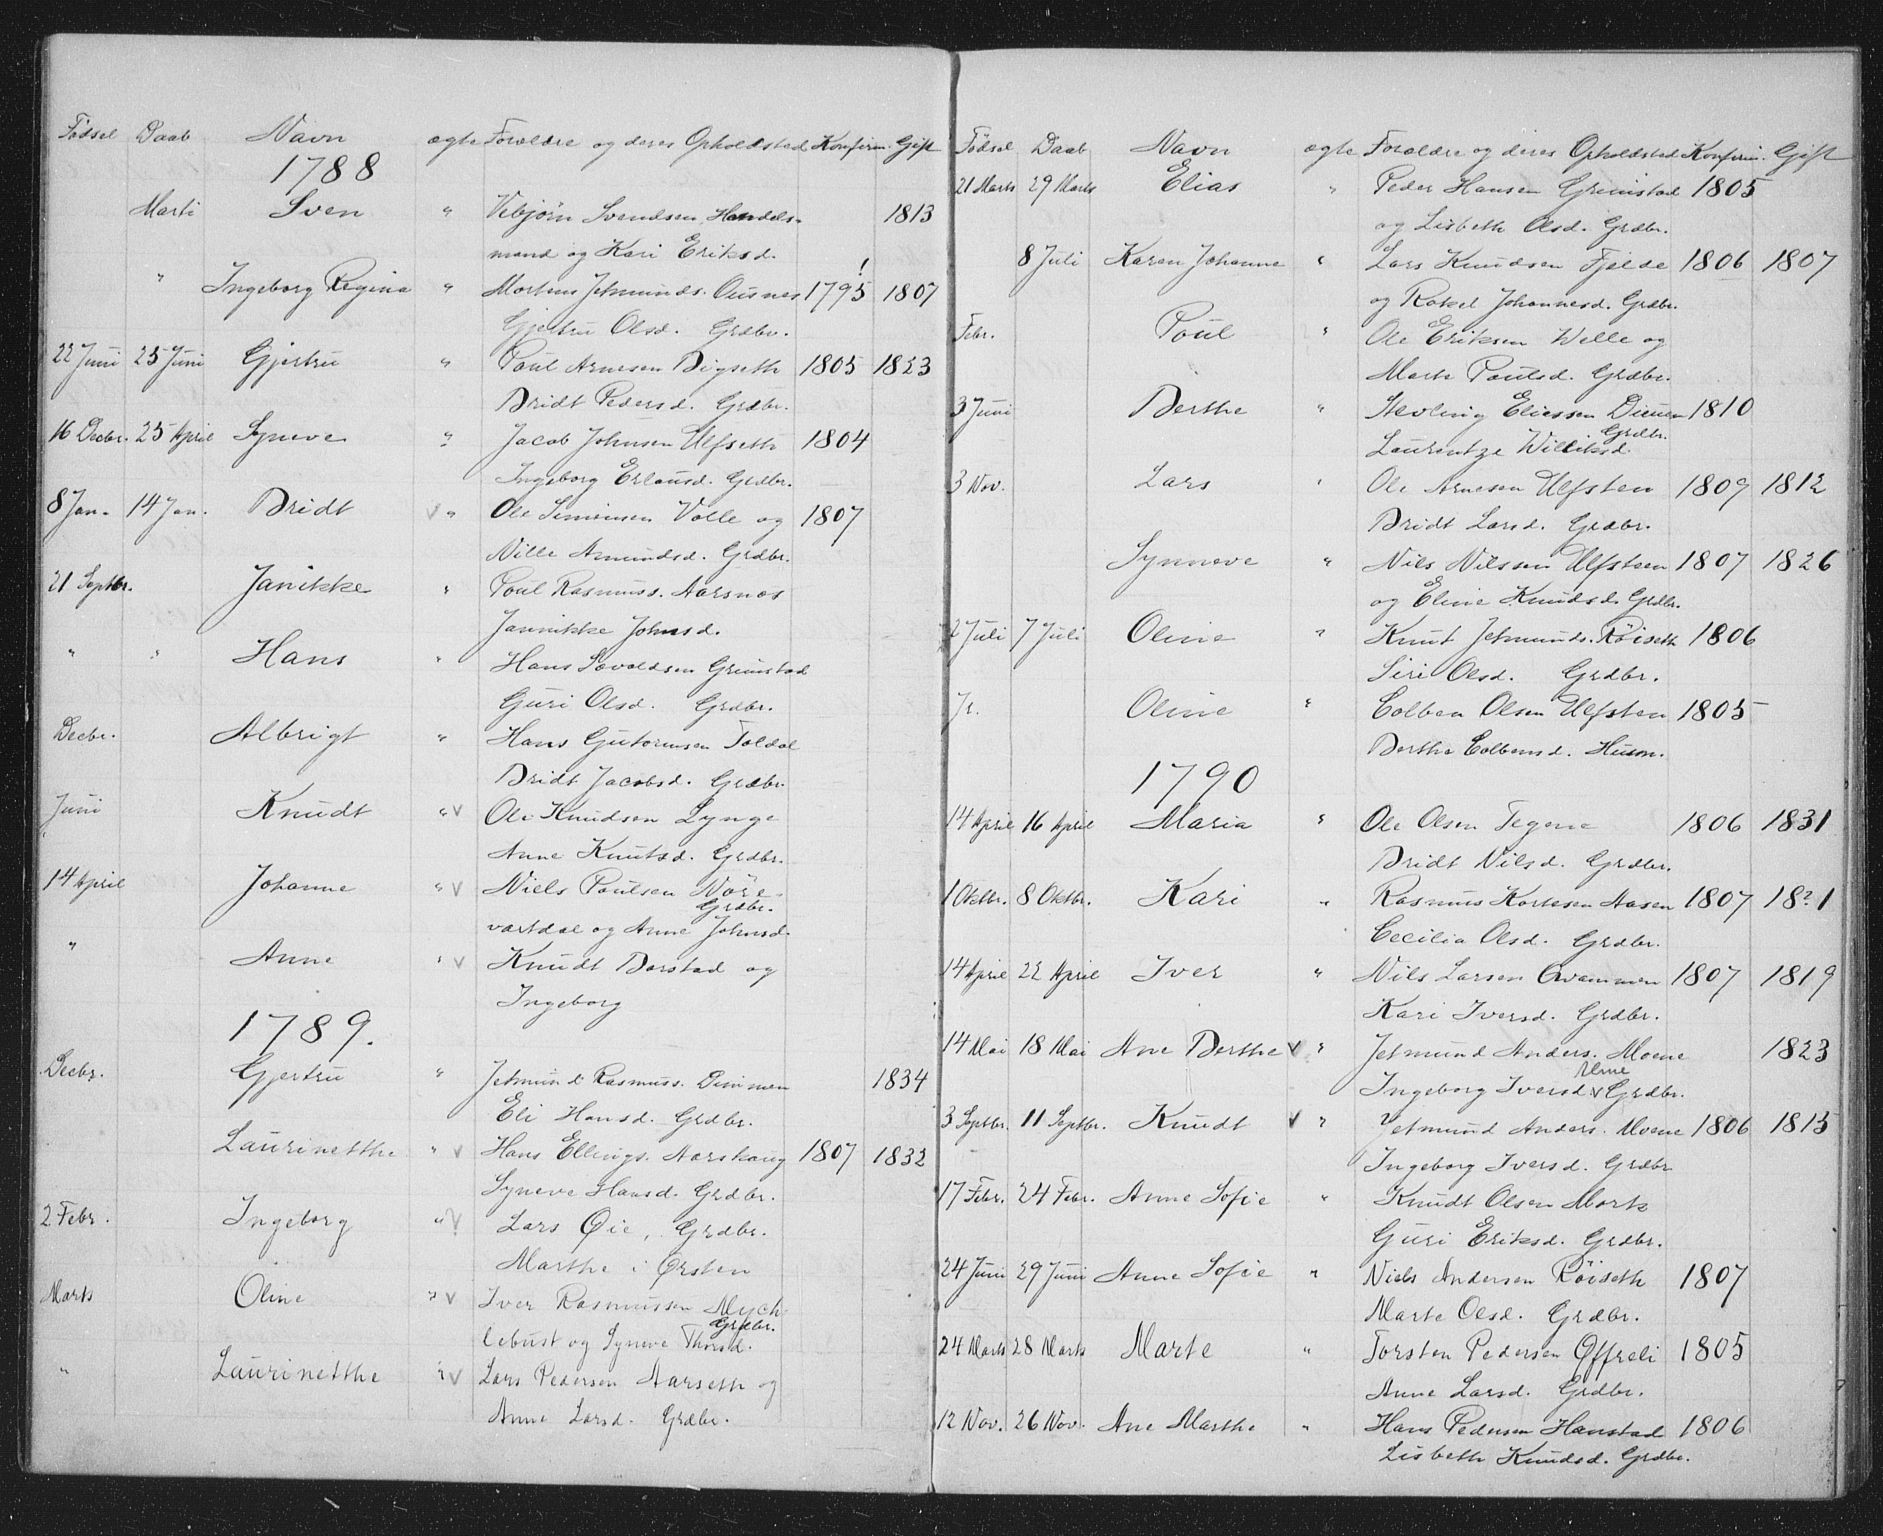 Fødsel Daab Navn ægte Forældre og deres Opholdsted Konfirm. Gift
1788
Marti Sven " Vebjørn Svendsen Handels- 1813
mand og Kari Eriksd.
" Ingeborg Regina " Morten Jetmunds. Ousnes 1795 ! 1807
Gjertru Olsd. Grdbr.
22 Juni 25 Juni Gjertru " Poul Arnesen Digseth 1805 1823
Bridt Pedersd. Grdbr.
16 Decbr. 25 April Syneve " Jacob Johnsen Ulfseth 1804
Ingeborg Erlandsd. Grdbr.
8 Jan. 14 Jan. Bridt v " Ole Simonsen Velle og 1807
Nille Amundsd. Grdbr.
21 Septbr. Janikke " Poul Rasmuss. Aarsnes
Jannikke Johnsd.
" " Hans " Hans Sevaldsen Grimstad
Guri Olsd. Grdbr.
Decbr. Albrigt " Hans Gutormsen Foldal
Bridt Jacobsd. Grdbr.
Juni Knudt " v Ole Knudsen Lynge
Anne Knutsd. Grdbr.
14 April Johanne " v Niels Poulsen Nöre-
Grdbr.
vartdal og Anne Johnsd.
" Anne " v Knudt Barstad og
Ingeborg
1789.
Decbr. Gjertru " Jetmund Rasmuss. Dimmen 1834
Eli Hansd. Grdbr.
Laurinetthe " v Hans Ellings. Aarskoug 1807 1832
Syneve Hansd. Grdbr.
2 Febr. Ingeborg " v Lars Øie, Grdbr.
Marthe i Ørsten
Marts Oline " v Iver Rasmussen Mych-
Grdbr.
lebust og Syneve Thorsd.
" Laurinetthe " v Lars Pedersen Aarseth og
Anne Larsd. Grdbr.
Födsel Daab Navn ægte Forældre og deres Opholdsted Konfirm. Gift
21 Marts 29 Marts Elias " Peder Hansen Grimstad 1805
og Lisbeth Olsd. Grdbr.
8 Juli Karen Johanne " Lars Knudsen Fjelde 1806 1807
og Rakel Johannesd. Grdbr.
Febr. Poul " Ole Eriksen Welle og
Marte Poulsd. Grdbr.
3 Juni Berthe " Stevling Eliassen Dimen 1810
Grdbr.
Laurentze Williksd.
3 Nov. Lars " Ole Arnesen Ulfsten 1809 1812
Bridt Larsd. Grdbr.
Synneve " Nils Nilssen Ulfsteen 1807 1826
og Eline Knudsd. Grdbr.
2 Juli 7 Juli Oline " Knut Jetmunds. Röiseth 1806
Siri Olsd. Grdbr.
Oline " Colben Olsen Ulfsten 1805
Berthe Colbensd. Husm.
1790
14 April 16 April Maria " Ole Olsen Tegene 1806 1831
Bridt Nilsd. Grdbr.
1 Oktbr. 8 Oktbr. Kari " Rasmus Kortesen Aasen 1807 18?1
Cecilia Olsd. Grdbr.
14 April 22 April Iver " Nils Larsen Qvammen 1807 1819
Kari Iversd. Grdbr.
14 Mai 18 Mai Ane Berthe v " Jetmund Anders. Moene 1823
Ingeborg Iversd. v Grdbr.
3 Septbr. 11 Septbr. Knudt v " Jetmund Anders. Moene 1806 1815
Ingeborg Iversd. Grdbr.
17 Febr. 24 Febr. Anne Sofie " Knudt Olsen Mork
Guri Eriksd. Grdbr.
24 Juni 29 Juni Anne Sofie " Niels Andersen Röiseth 1807
Marte Olsd. Grdbr.
24 Marts 28 Marts Marte " Torsten Pedersen Øffreli 1805
Anne Larsd. Grdbr.
12 Nov. 26 Nov. Ane Marthe " Hans Pedersen Hanstad 1806
Lisbeth Knudsd. Grdbr.